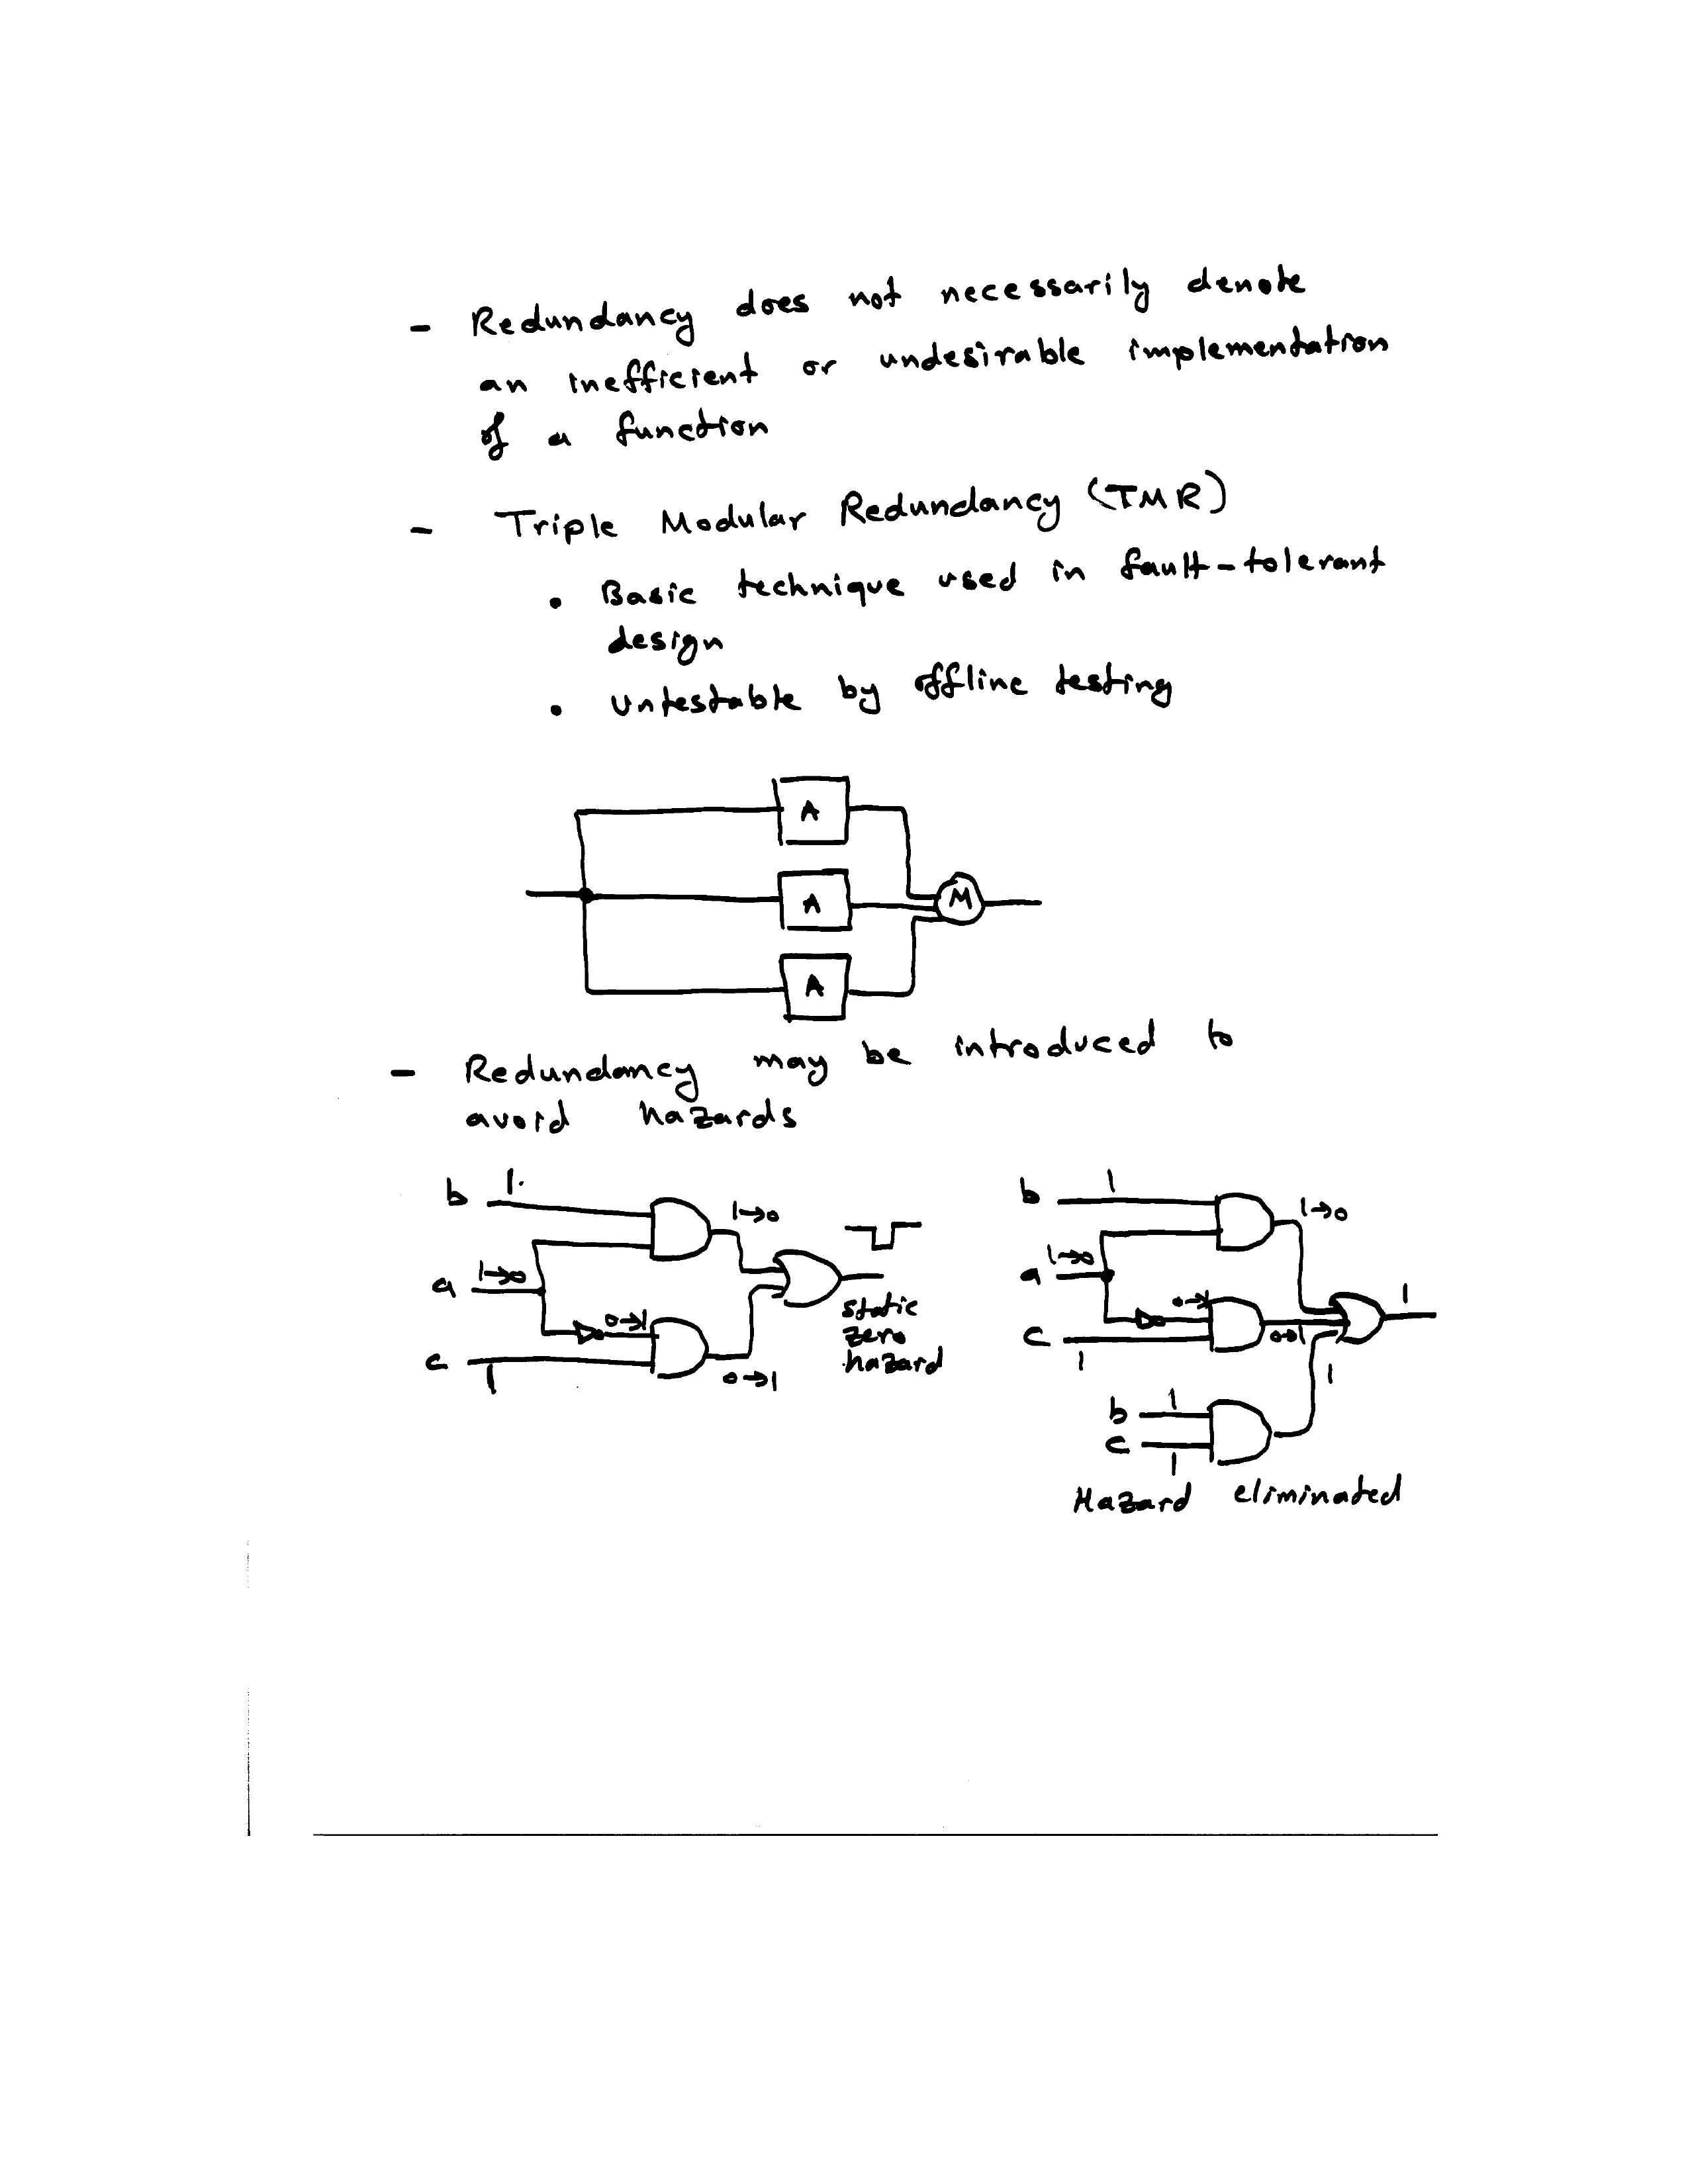 - Redundancy does not necessarily denote
an inefficient or undesirable implementation
of a function
- Triple Modular Redundancy (TMR)
• Basic technique used in fault-tolerant
design
• Untestable by offline testing
A
A
M
A
- Redundancy may be introduced to
avoid hazards
b 1
1→0
a 1→0
0→1
c 1
0→1
static
zero
hazard
b 1
1→0
a 1→0
0→1
1
c 1
0→1
1
b 1
c 1
Hazard eliminated